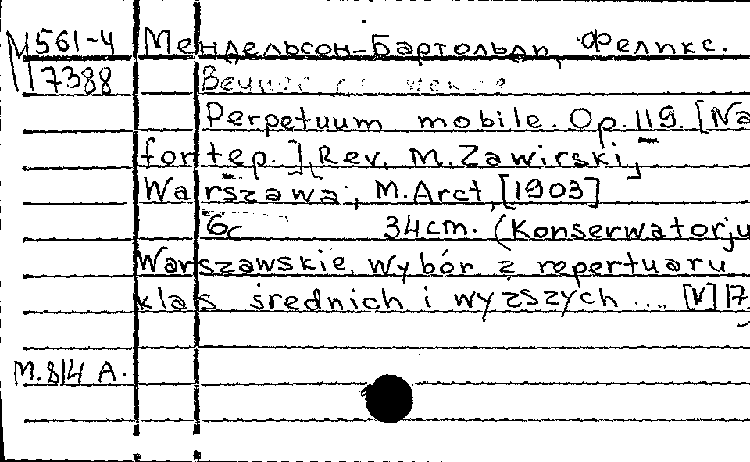 М561-4 Мендельсон-Бартольди, Феликс.
17388 Вечное
Perpetuum mobile. Op. 119. [Na
fortep.]. Rev. M. Zawirski,
Warszawa, M. Arct, [1903]
6с 34cm. (Konserwatorju
Warszawskie. Wybór z repertuaru
klas średnich i wyższych ... [V] 17
M.814 A.